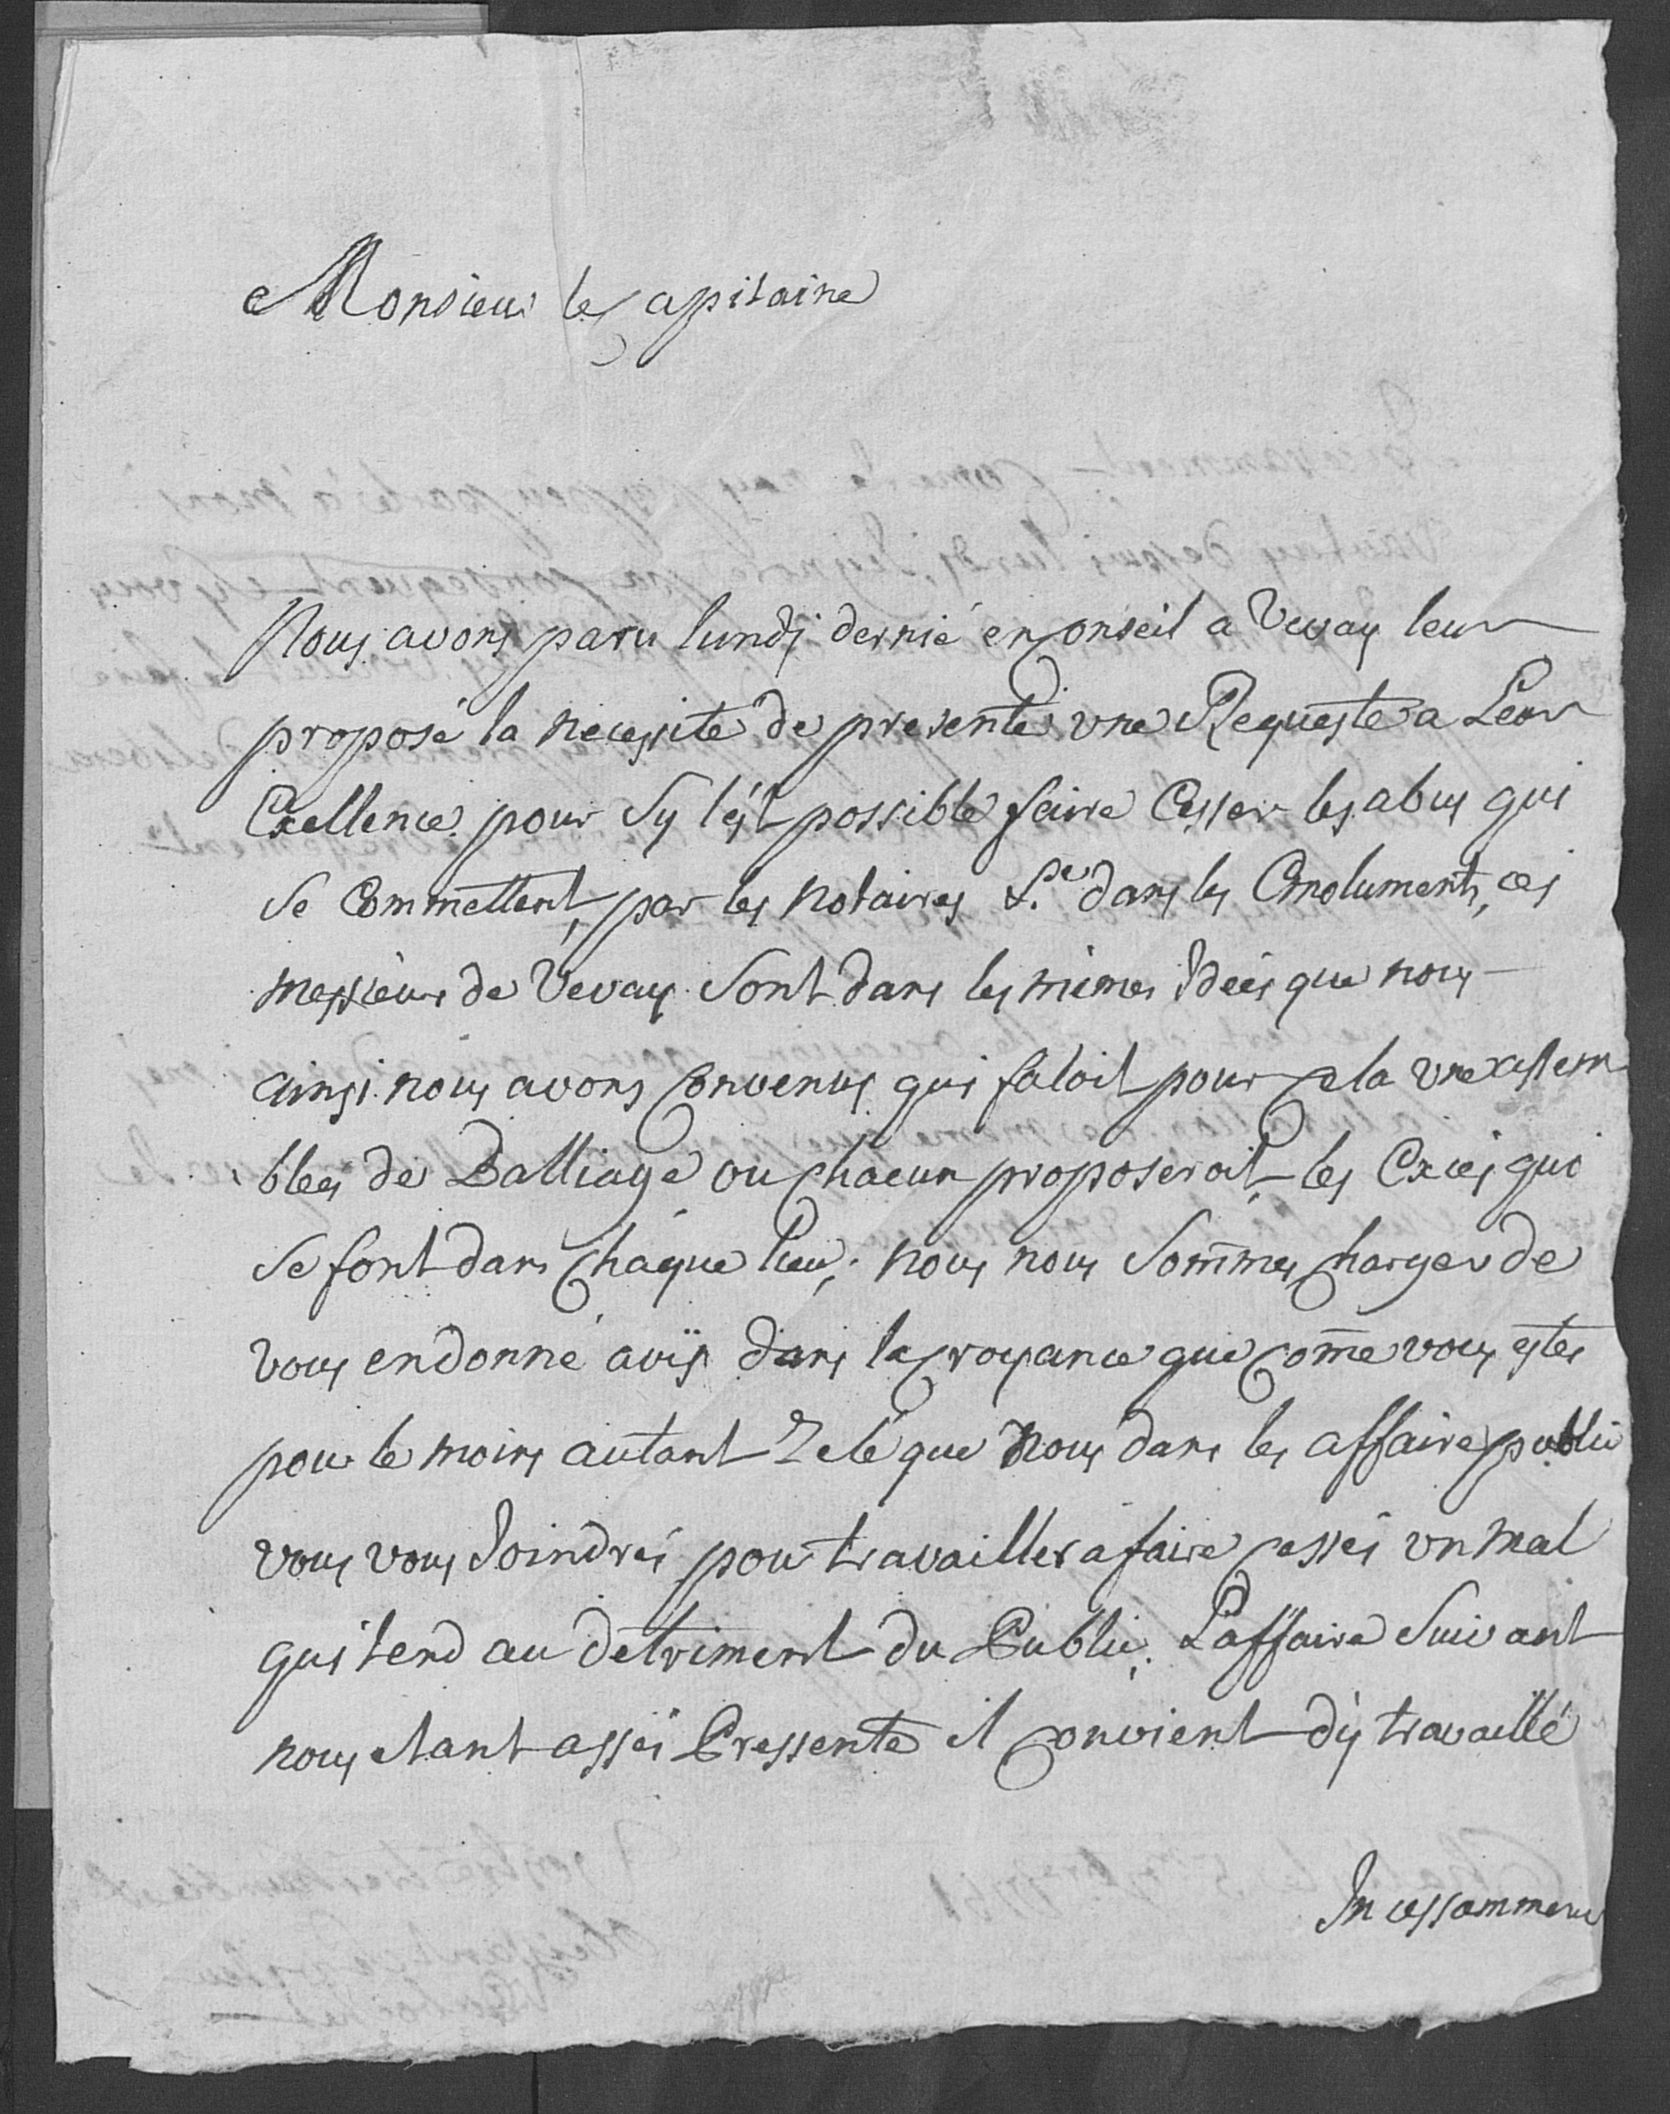 Monsieur le Capitaine
Nous avons paru lundi dernié en Conseil a Vevay leur
proposé la necessite de presenté une Requeste a Leur
Exellence pour sy l'est possible faire Cesser les abus qui
se Commettent, par les Notaires &.e dans les Emoluments, ces
messieurs de Vevay sont dans les mêmes Idées que nous
ainsi nous avons Convenus qui faloit pour Cela une assem
blées de Balliage ou Chacun proposeroit les Exces qui
se font dans Chaque lieu; nous nous Som̄mes Charger de
vous en donné avis dans la Croyance que Com̄e vous estes
pour le moins autant Zelé que Nous dans les affaires public
vous vous Joindrés pour travailler a faire Cessés un mal
qui tend au detriment du Public, L'affaire Suivant
nous etant assés Pressente il Convient d'ÿ travaillé
Incessamment